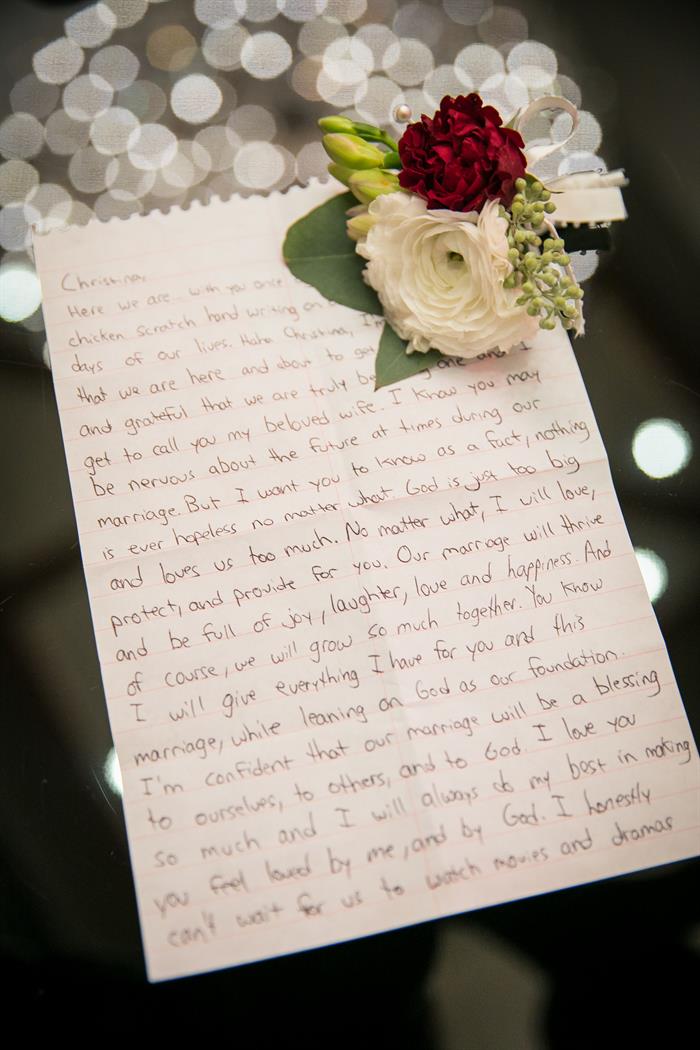 Christina,
Here we are... with you once
chicken scratch hand writing on
days of our lives. Haha Christina, I'm
that we are here and about to ge
and grateful that we are truly b g one and I
get to call you my beloved wife. I know you may
be nervous about the future at times during our
marriage. But I want you to know as a fact, nothing
is ever hopeless no matter what. God is just too big
and loves us too much. No matter what, I will love,
protect, and provide for you. Our marriage will thrive
and be full of joy, laughter, love and happiness. And
of course, we will grow so much together. You know
I will give everything I have for you and this
marriage, while leaning on God as our foundation.
I'm confident that our marriage will be a blessing
to ourselves, to others, and to God. I love you
so much and I will always do my best in making
you feel loved by me, and by God. I honestly
can't wait for us to watch movies and dramas